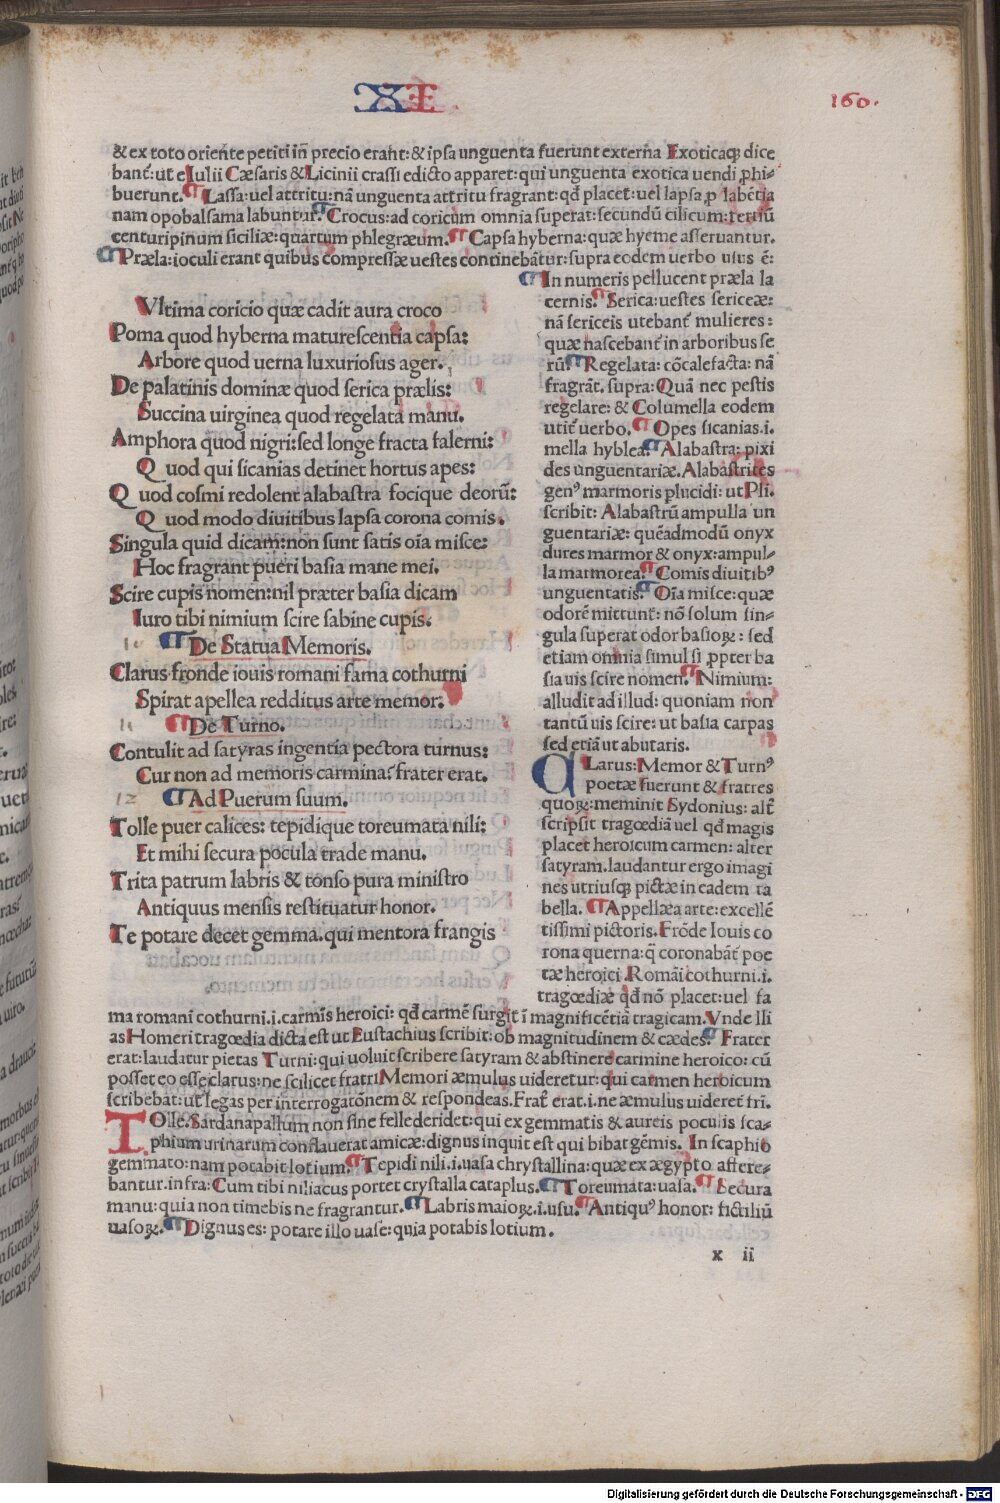 XI
160.
& ex toto oriente petiti in precio erant: & ipsa unguenta fuerunt externa Exoticaqȝ dice
bant̃: ut e Iulii Cæsaris & Licinii crassi edicto apparet: qui unguenta exotica uendi ꝓhi-
buerunt. ¶ Lassa: uel attritu: nã unguenta attritu fragrant: qđ placet: uel lapsa ꝓ labẽtia
nam opobalsama labuntur. ¶ Crocus: ad coricum omnia superat: secundũ cilicum: tertiũ
centuripinum siciliæ: quartum phlegræum. ¶ Capsa hyberna: quæ hyeme asseruantur.
¶ Præla: ioculi erant quibus compressæ uestes continebãtur: supra eodem uerbo usus ẽ:
Vltima coricio quæ cadit aura croco
Poma quod hyberna maturescentia capsa:
Arbore quod uerna luxuriosus ager.
De palatinis dominæ quod serica prælis:
Succina uirginea quod regelata manu.
Amphora quod nigri: sed longe fracta falerni:
Q uod qui sicanias detinet hortus apes:
Q uod cosmi redolent alabastra focique deorũ:
Q uod modo diuitibus lapsa corona comis.
Singula quid dicam: non sunt satis oĩa misce:
Hoc fragrant pueri basia mane mei.
Scire cupis nomen: nil præter basia dicam
Iuro tibi nimium scire sabine cupis.
¶ De Statua Memoris.
Clarus fronde iouis romani fama cothurni
Spirat apellea redditus arte memor.
¶ De Turno.
Contulit ad satyras ingentia pectora turnus:
Cur non ad memoris carmina? frater erat.
12 ¶ Ad Puerum suum.
Tolle puer calices: tepidique toreumata nili:
Et mihi secura pocula trade manu.
Trita patrum labris & tonso pura ministro
Antiquus mensis restituatur honor.
Te potare decet gemma. qui mentora frangis
¶ In numeris pellucent præla la
cernis. ¶ Serica: uestes sericeæ:
nã sericeis utebant̃ mulieres:
quæ nascebant̃ in arboribus se
rũ. ¶ Regelata: cõcalefacta: nã
fragrãt. supra: Quã nec pestis
regelare: & Columella eodem
utit̃ uerbo. ¶ Opes sicanias .i.
mella hyblea. ¶ Alabastra: pixi
des unguentariæ. Alabastrites
genꝰ marmoris plucidi: ut Pli.
scribit: Alabastrũ ampulla un
guentariæ: quẽadmodũ onyx
dures marmor & onyx: ampul-
la marmorea. ¶ Comis diuitibꝰ
unguentatis. ¶ Oĩa misce: quæ
odorẽ mittunt: nõ solum sin-
gula superat odor basioꝝ: sed
etiam omnia simul si ꝓpter ba
sia uis scire nomen. ¶ Nimium:
alludit ad illud: quoniam non
tantũ uis scire: ut basia carpas
sed etiã ut abutaris.
CLarus: Memor & Turnꝰ
poetæ fuerunt & fratres
quoꝝ: meminit Sydonius: alt̃
scripsit tragœdiã uel qđ magis
placet heroicum carmen: alter
satyram. laudantur ergo imagi
nes utriusqȝ pictæ in eadem ta
bella. ¶ Appellæa arte: excellẽ
tissimi pictoris. Frõde Iouis co
rona querna: q̃ coronabãt̃ poe
tæ heroici. Romãi cothurni .i.
tragœdiæ qđ nõ placet: uel fa
ma romani cothurni .i. carmĩs heroici: qđ carmẽ surgit ĩ magnificẽtiã tragicam. Vnde Ili
as Homeri tragœdia dicta est ut Eustachius scribit: ob magnitudinem & cædes. ¶ Frater
erat: laudatur pietas Turni: qui uoluit scribere satyram & abstinere carmine heroico: cũ
posset eo esse clarus: ne scilicet fratri Memori æmulus uideretur: qui carmen heroicum
scribebat: ut legas per interrogatõnem & respondeas. Frat̃ erat .i. ne æmulus uideret̃ fr̃i.
TOlle. Sardanapallum non sine felle deridet: qui ex gemmatis & aureis poculis sca-
phium urinarum conflauerat amicæ: dignus inquit est qui bibat gẽmis. In scaphio
gemmato: nam potabit lotium. ¶ Tepidi nili .i. uasa chrystallina: quæ ex ægypto affere-
bantur. infra: Cum tibi niliacus portet crystalla cataplus. ¶ Toreumata: uasa. ¶ Secura
manu: quia non timebis ne fragrantur. ¶ Labris maioꝝ .i. usu. ¶ Antiquꝰ honor: fictiliũ
uasoꝝ. ¶ Dignus es: potare illo uase: quia potabis lotium.
x ii
Digitalisierung gefördert durch die Deutsche Forschungsgemeinschaft - DFG